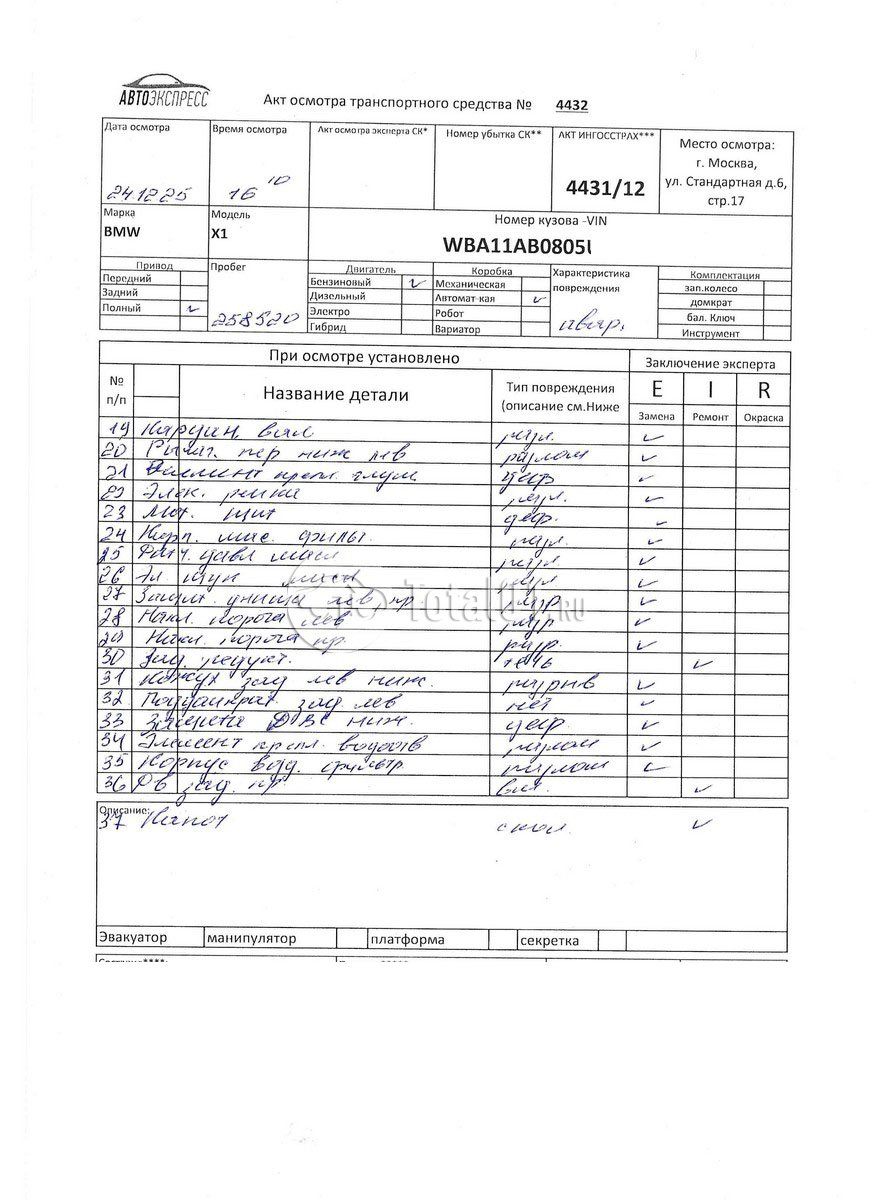 АВТОЭКСПРЕСС
Акт осмотра транспортного средства № 4432
Дата осмотра Время осмотра Акт осмотра эксперта СК* Номер убытка СК** АКТ ИНГОССТРАХ*** Место осмотра:
г. Москва,
24.12.25 16 10 4431/12 ул. Стандартная д.6,
стр.17
Марка Модель Номер кузова -VIN
BMW X1 WBA11AB0805
Привод Пробег Двигатель Коробка Характеристика Комплектация
Передний Бензиновый Механическая повреждения зап.колесо
Задний Дизельный Автомат-кая домкрат
Полный 258520 Электро Робот авар. бал. Ключ
Гибрид Вариатор Инструмент
При осмотре установлено Заключение эксперта
№ п/п Название детали Тип повреждения E I R
(описание см.Ниже Замена Ремонт Окраска
19 Кардан. вал разл.
20 Рычаг. пер ниж лев разлом
21 Элемент крепл. глуш. деф
22 Элек. рейка разл.
23 Мот. щит деф.
24 Корп. мас. фильт. разл.
25 Датч. давл масл разл
26 Эл.
27 Защит. днища лев, пр разр
28 Накл. порога лев разр
29 Накл. порога пр. разр.
30 Зад. редукт. течь
31 Кожух зад лев ниж. разрыв
32 Поддомкрат. зад лев нет
33 ДВС ниж. деф.
34 Элемент крепл. разлом
35 Корпус возд. фильтр. разлом
36 зад. пр.
Описание:
37 Капот скол.
Эвакуатор манипулятор платформа секретка
TotalCar.RU